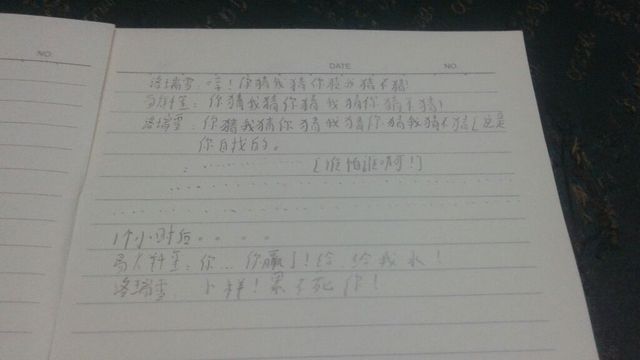 NO.
DATE NO.
洛瑞雪:哼!你猜我猜你猜我猜不猜!
易人钎金:你猜我猜你猜我猜你猜不猜!
洛瑞雪:你猜我猜你猜我猜你猜我猜不猜[这是
你自找的。
:............[谁怕谁啊!]
1个小时后。。。。
易人钎金:你...你赢了!给 给我水!
洛瑞雪:小样!累不死你!